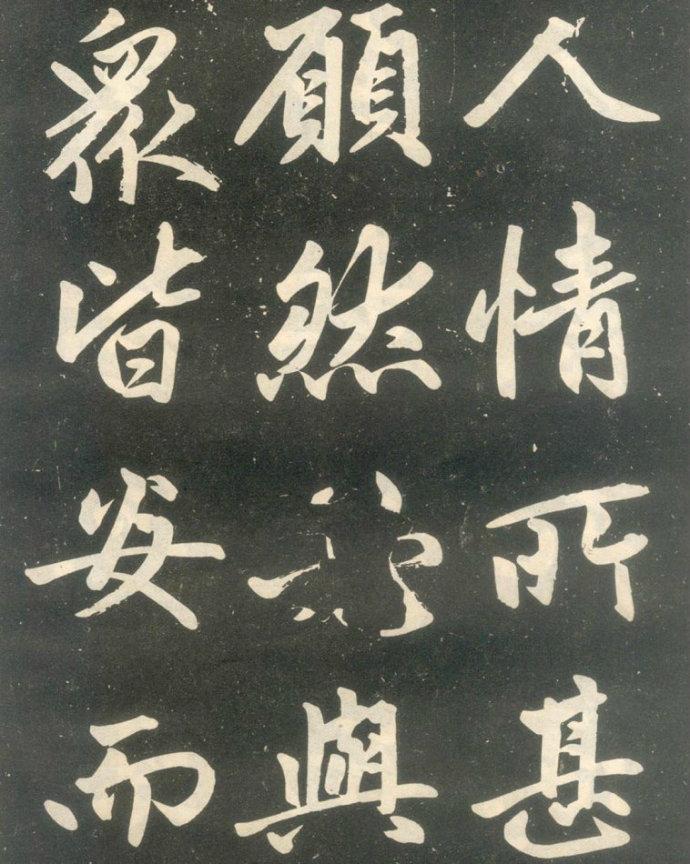 人情所甚
願然與
眾皆安而